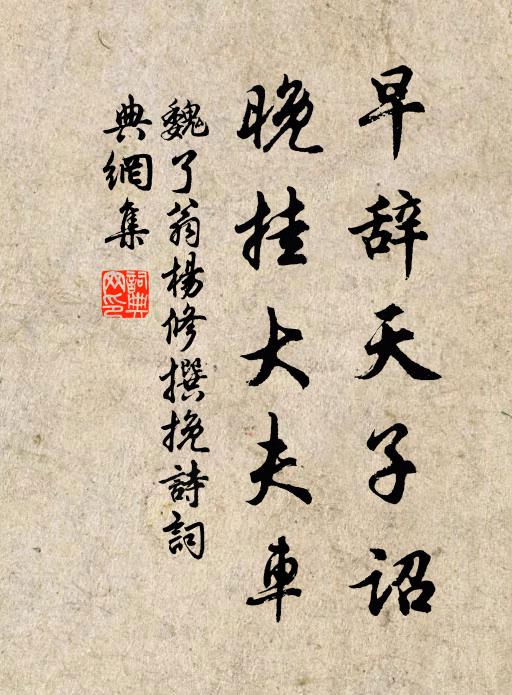 早辞天子詔
晚挂大夫車
魏了翁楊修撰挽詩詞
典網集
詞典网印